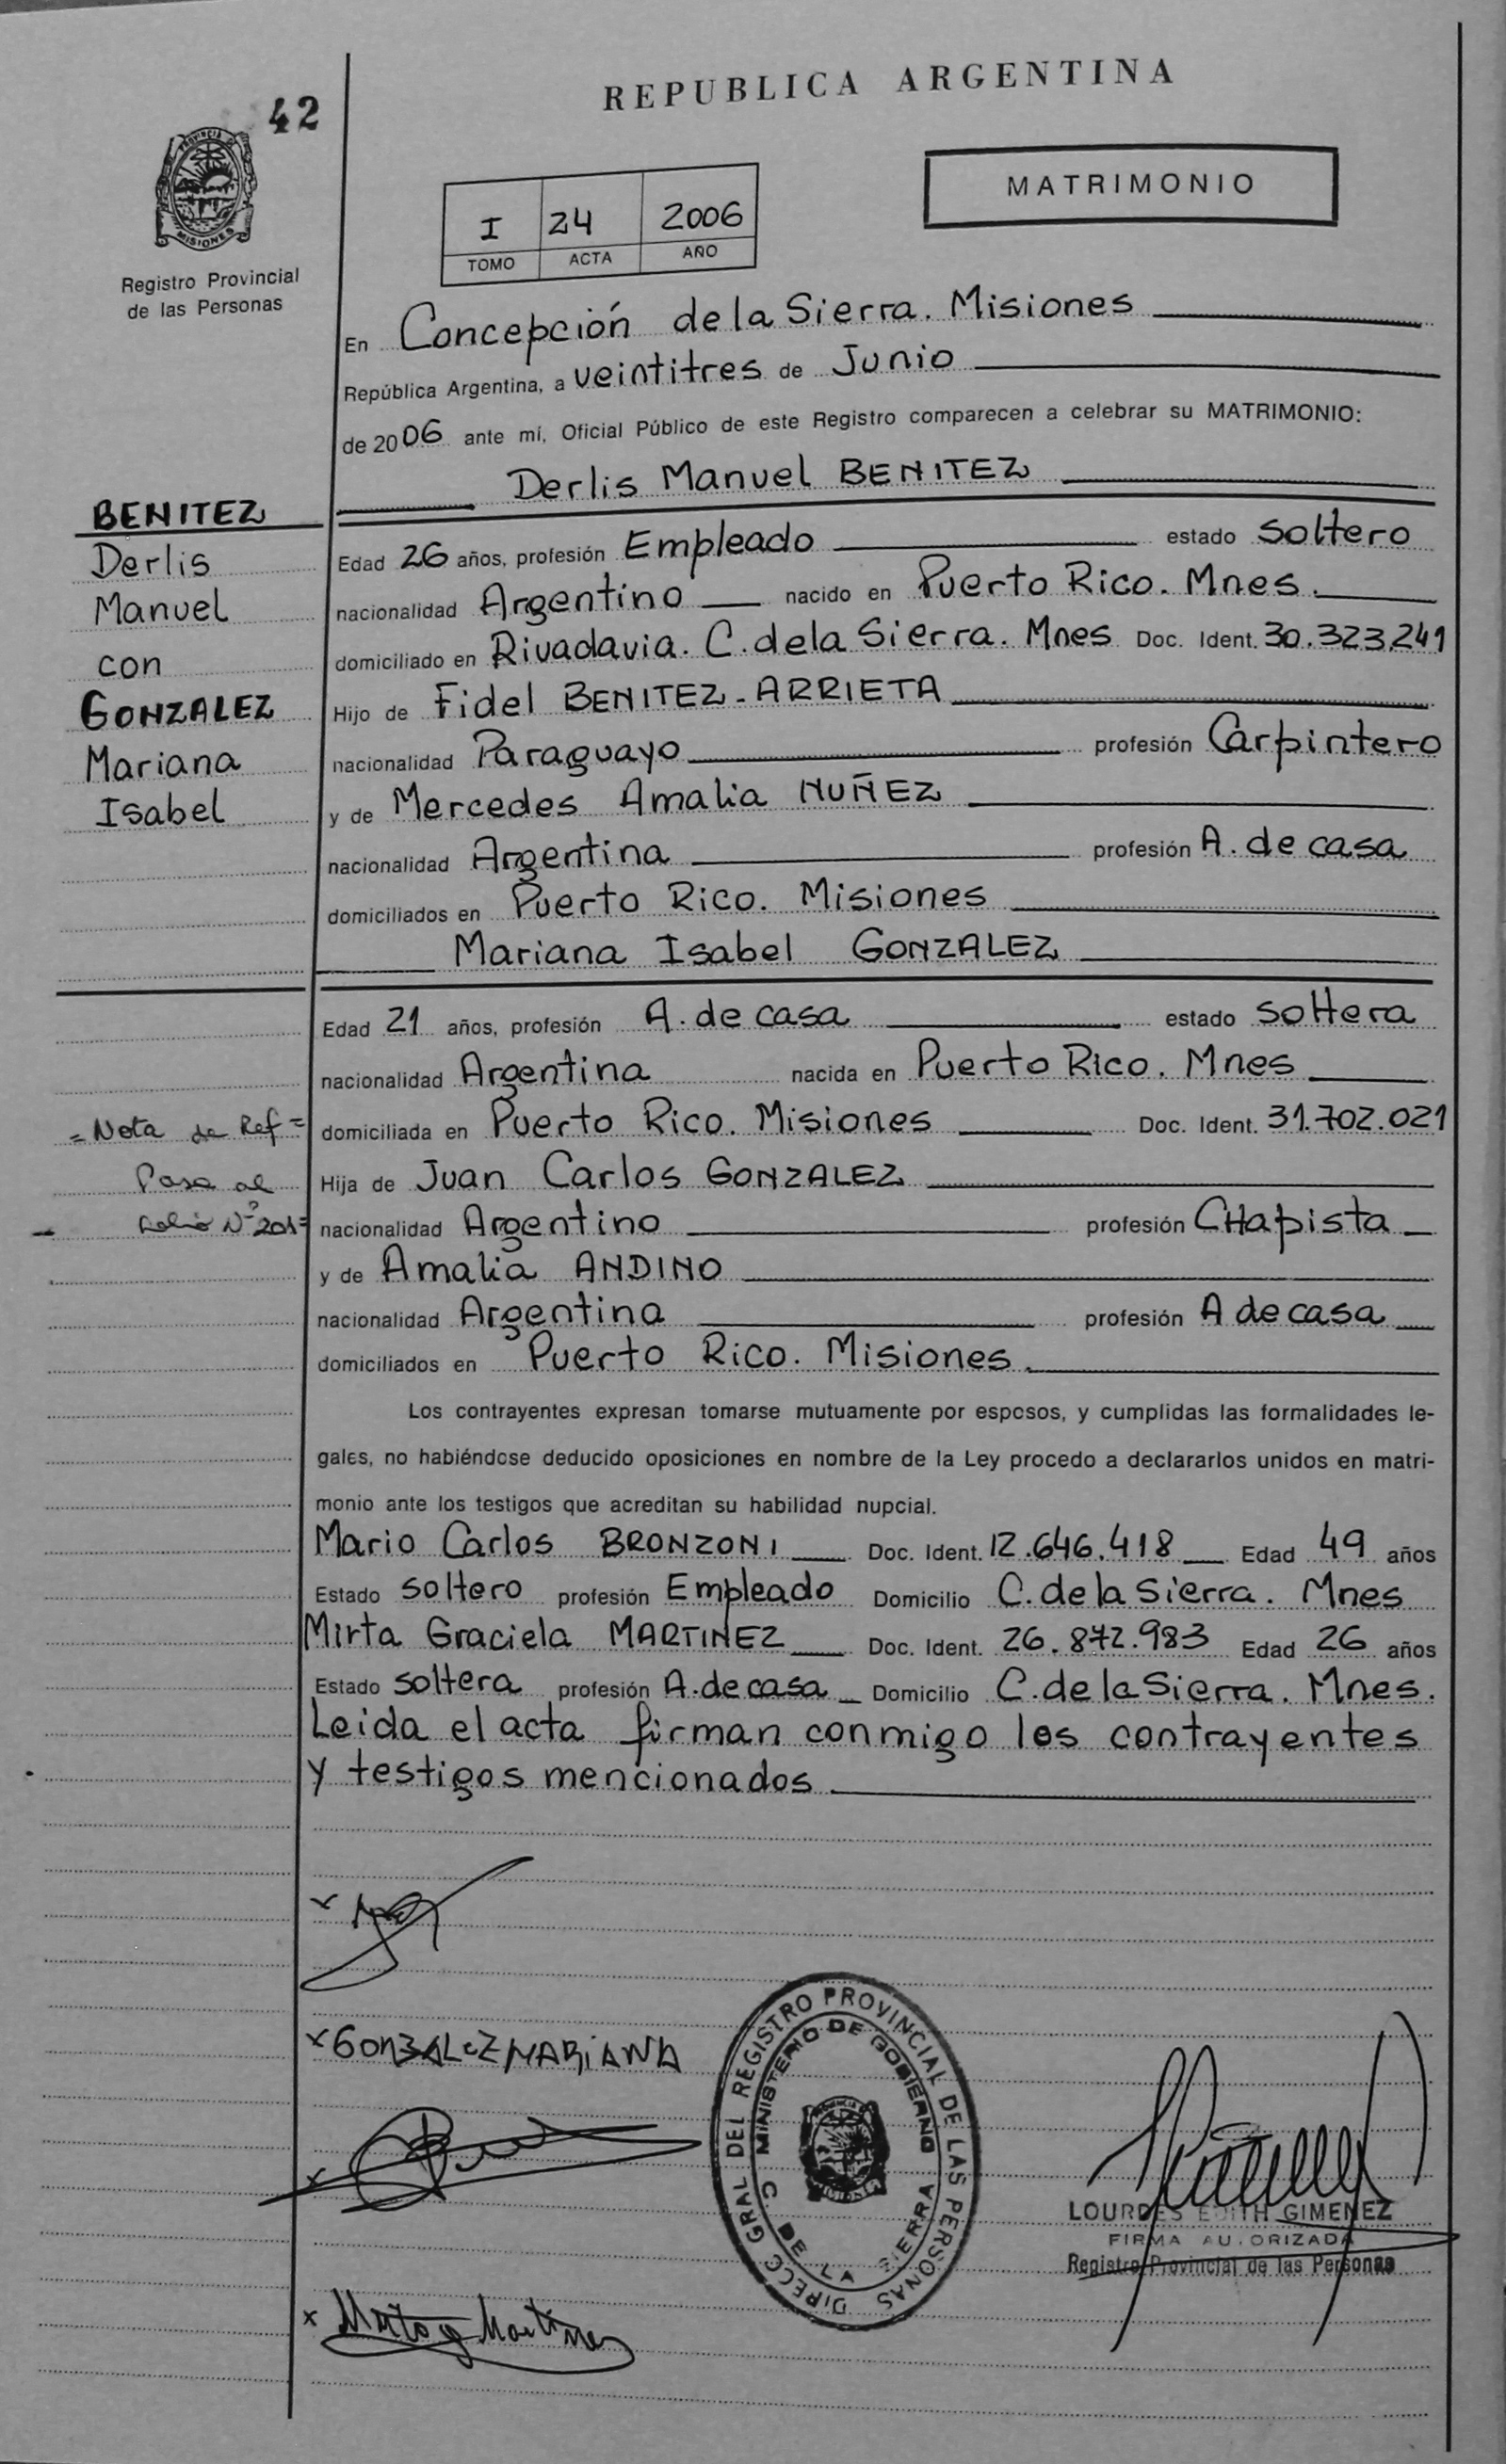 REPUBLICA ARGENTINA
42
MATRIMONIO
PROVINCIA DE
MISIONES
Registro Provincial
de las Personas
I 24 2006
TOMO ACTA AÑO
En Concepción de la Sierra. Misiones
República Argentina, a veintitres de Junio
de 2006 ante mí, Oficial Público de este Registro comparecen a celebrar su MATRIMONIO:
Derlis Manuel BENITEZ
BENITEZ
Derlis
Manuel
con
GONZALEZ
Mariana
Isabel
Edad 26 años, profesión Empleado estado Soltero
nacionalidad Argentino nacido en Puerto Rico. Mnes.
domiciliado en Rivadavia. C. de la Sierra. Mnes Doc. Ident. 30.323.241
Hijo de Fidel BENITEZ-ARRIETA
nacionalidad Paraguayo profesión Carpintero
y de Mercedes Amalia NUÑEZ
nacionalidad Argentina profesión A. de casa
domiciliados en Puerto Rico. Misiones
Mariana Isabel GONZALEZ
Edad 21 años, profesión A. de casa estado Soltera
nacionalidad Argentina nacida en Puerto Rico. Mnes
domiciliada en Puerto Rico. Misiones Doc. Ident. 31.702.021
= Nota de Ref =
Pasa al
Folio Nº 201=
Hija de Juan Carlos GONZALEZ
nacionalidad Argentino profesión CHapista
y de Amalia ANDINO
nacionalidad Argentina profesión A de casa
domiciliados en Puerto Rico. Misiones.
Los contrayentes expresan tomarse mutuamente por esposos, y cumplidas las formalidades le-
gales, no habiéndose deducido oposiciones en nombre de la Ley procedo a declararlos unidos en matri-
monio ante los testigos que acreditan su habilidad nupcial.
Mario Carlos BRONZONI Doc. Ident. 12.646.418 Edad 49 años
Estado Soltero profesión Empleado Domicilio C. de la Sierra. Mnes
Mirta Graciela MARTINEZ Doc. Ident. 26.872.983 Edad 26 años
Estado Soltera profesión A. de casa Domicilio C. de la Sierra. Mnes.
Leida el acta firman conmigo los contrayentes
y testigos mencionados
x
x GONZALEZ MARIANA
x
DIRECC GRAL DEL REGISTRO PROVINCIAL DE LAS PERSONAS
MINISTERIO DE GOBIERNO
C. DE LA SIERRA
LOURDES EDITH GIMENEZ
FIRMA AUTORIZADA
Registro Provincial de las Personas
x Mirta G Martinez